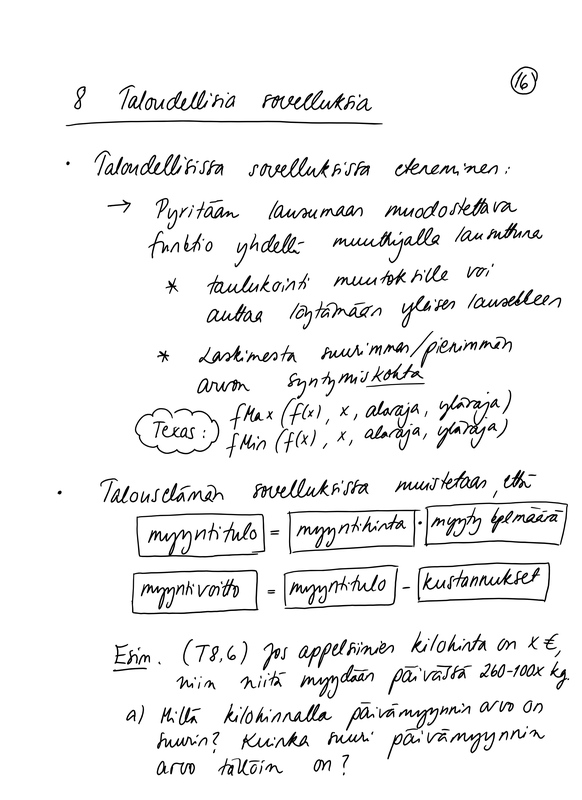 16
8 Taloudellisia sovelluksia
• Taloudellisissa sovelluksissa eteneminen:
→ Pyritään lausumaan muodostettava
funktio yhdellä muuttujalla lausuttuna
* taulukointi muutoksille voi
auttaa löytämään yleisen lausekkeen
* Laskimesta suurimman/pienimmän
arvon syntymiskohta
Texas: fMax (f(x), x, alaraja, yläraja)
fMin (f(x), x, alaraja, yläraja)
• Talouselämän sovelluksissa muistetaan, että
myyntitulo = myyntihinta · myyty kplmäärä
myyntivoitto = myyntitulo - kustannukset
Esim. (T8,6) Jos appelsiinien kilohinta on x €,
niin niitä myydään päivässä 260-100x kg.
a) Millä kilohinnalla päivämyynnin arvo on
suurin? Kuinka suuri päivämyynnin
arvo tällöin on?